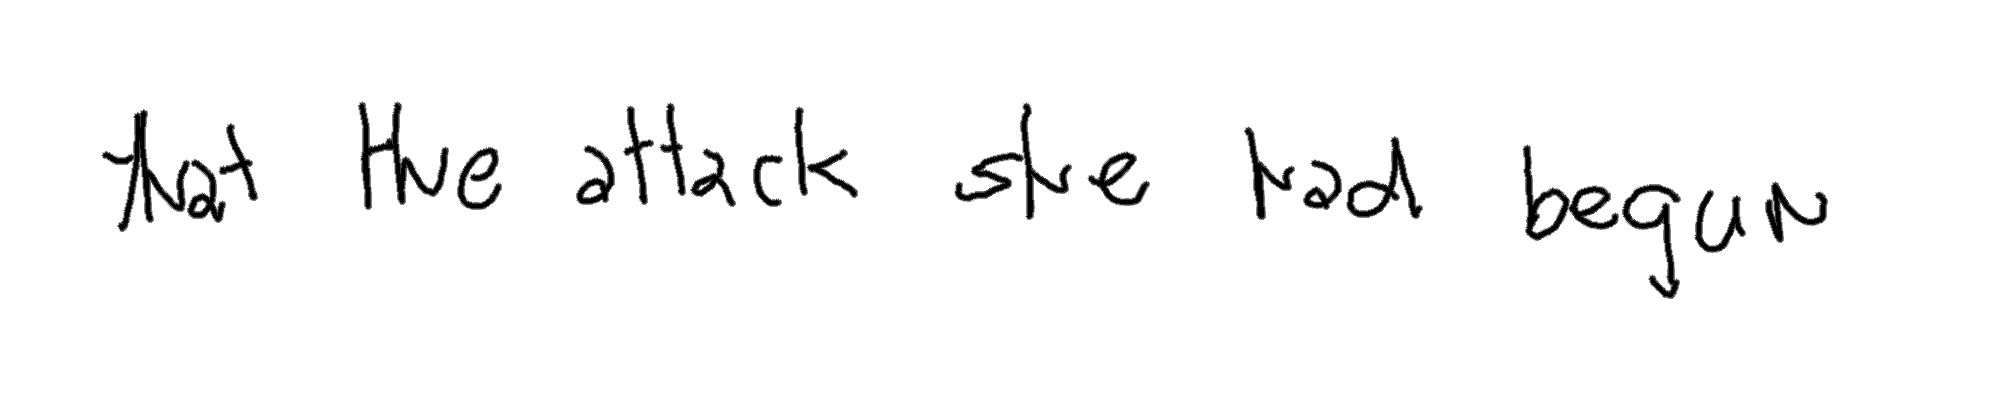 that the attack she had begun